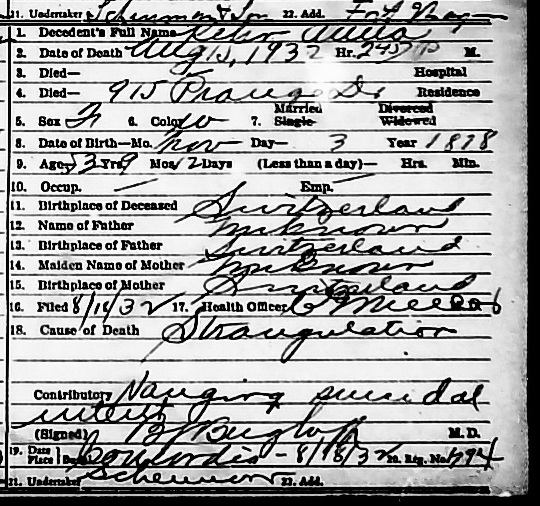 21. Undertaker Scheumann & Son 22. Add. Fort Wayne
1. Decedent's Full Name
2. Date of Death Aug 15, 1932 Hr. M.
3. Died— Hospital
4. Died— 915 Prange Dr Residence
Married Divorced
5. Sex F 6. Color W 7. Single Widowed
8. Date of Birth—Mo. Nov Day— 3 Year 1878
9. Age 53 Yrs 9 Mos 12 Days (Less than a day)— Hrs. Min.
10. Occup. — Emp. —
11. Birthplace of Deceased Switzerland
12. Name of Father Unknown
13. Birthplace of Father Switzerland
14. Maiden Name of Mother Unknown
15. Birthplace of Mother Switzerland
16. Filed 8/18/32 17. Health Officer
18. Cause of Death Strangulation
Contributory Hanging suicidal
intent
(Signed) M. D.
19. Date Place Bur. Concordia - 8/18/32 20. Reg. No.
21. Undertaker 22. Add.